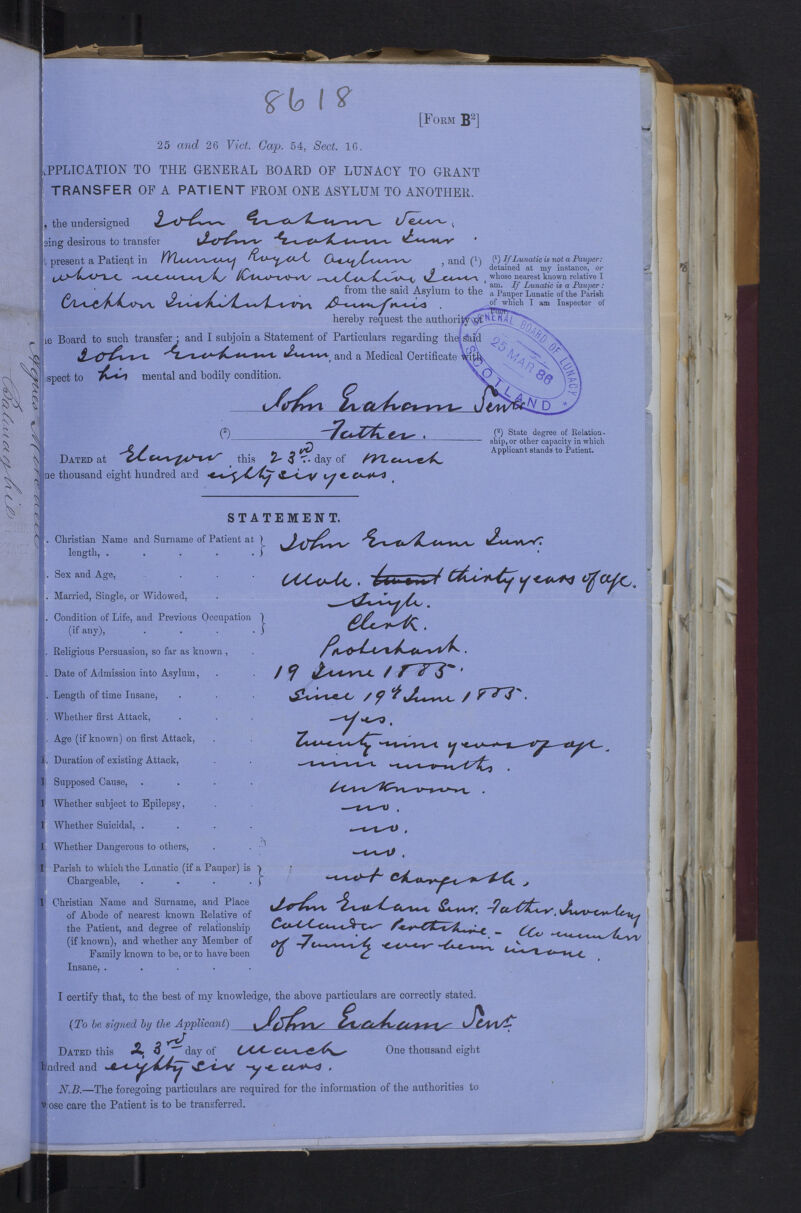 8618
[FORM B²]
25 and 26 Vict. Cap. 54, Sect. 16.
APPLICATION TO THE GENERAL BOARD OF LUNACY TO GRANT
TRANSFER OF A PATIENT FROM ONE ASYLUM TO ANOTHER.
, the undersigned John Graham Senr,
eing desirous to transfer John Graham Junr
present a Patient in Murray Royal Asylum, and (¹)
whose nearest known relative I am,
from the said Asylum to the
Crichton Institution Dumfries.
hereby request the authority of
(¹) If Lunatic is not a Pauper:
detained at my instance, or
whose nearest known relative I
am. If Lunatic is a Pauper:
a Pauper Lunatic of the Parish
of which I am Inspector of
Poor.
GENERAL BOARD OF LUNACY
25 MAR 86
SCOTLAND
he Board to such transfer; and I subjoin a Statement of Particulars regarding the said
John Graham Junr, and a Medical Certificate with
espect to his mental and bodily condition.
John Graham Senr
(²) Father.
(²) State degree of Relation-
ship, or other capacity in which
Applicant stands to Patient.
DATED at Glasgow this 23rd day of March
ne thousand eight hundred and eighty six years.
STATEMENT.
. Christian Name and Surname of Patient at
length, . John Graham Junr.
. Sex and Age, Male. twent thirty years of age.
. Married, Single, or Widowed, Single.
. Condition of Life, and Previous Occupation
(if any), Clerk.
. Religious Persuasion, so far as known, Protestant.
. Date of Admission into Asylum, 19 June 1885.
. Length of time Insane, Since 19th June 1885.
. Whether first Attack, Yes.
. Age (if known) on first Attack, Twenty nine years of age.
. Duration of existing Attack, nine months.
1 Supposed Cause, . Unknown.
1 Whether subject to Epilepsy, no.
1 Whether Suicidal, . no.
1 Whether Dangerous to others, no.
1 Parish to which the Lunatic (if a Pauper) is
Chargeable, not chargeable,
1 Christian Name and Surname, and Place
of Abode of nearest known Relative of
the Patient, and degree of relationship
(if known), and whether any Member of
Family known to be, or to have been
Insane, .
John Graham Senr. Father.
Callander Perthshire. - No member
of Family ever been insane.
I certify that, to the best of my knowledge, the above particulars are correctly stated.
(To be signed by the Applicant) John Graham Senr.
DATED this 23rd day of March One thousand eight
hundred and eighty six years.
N.B.—The foregoing particulars are required for the information of the authorities to
whose care the Patient is to be transferred.
Agnes
Balmaghie